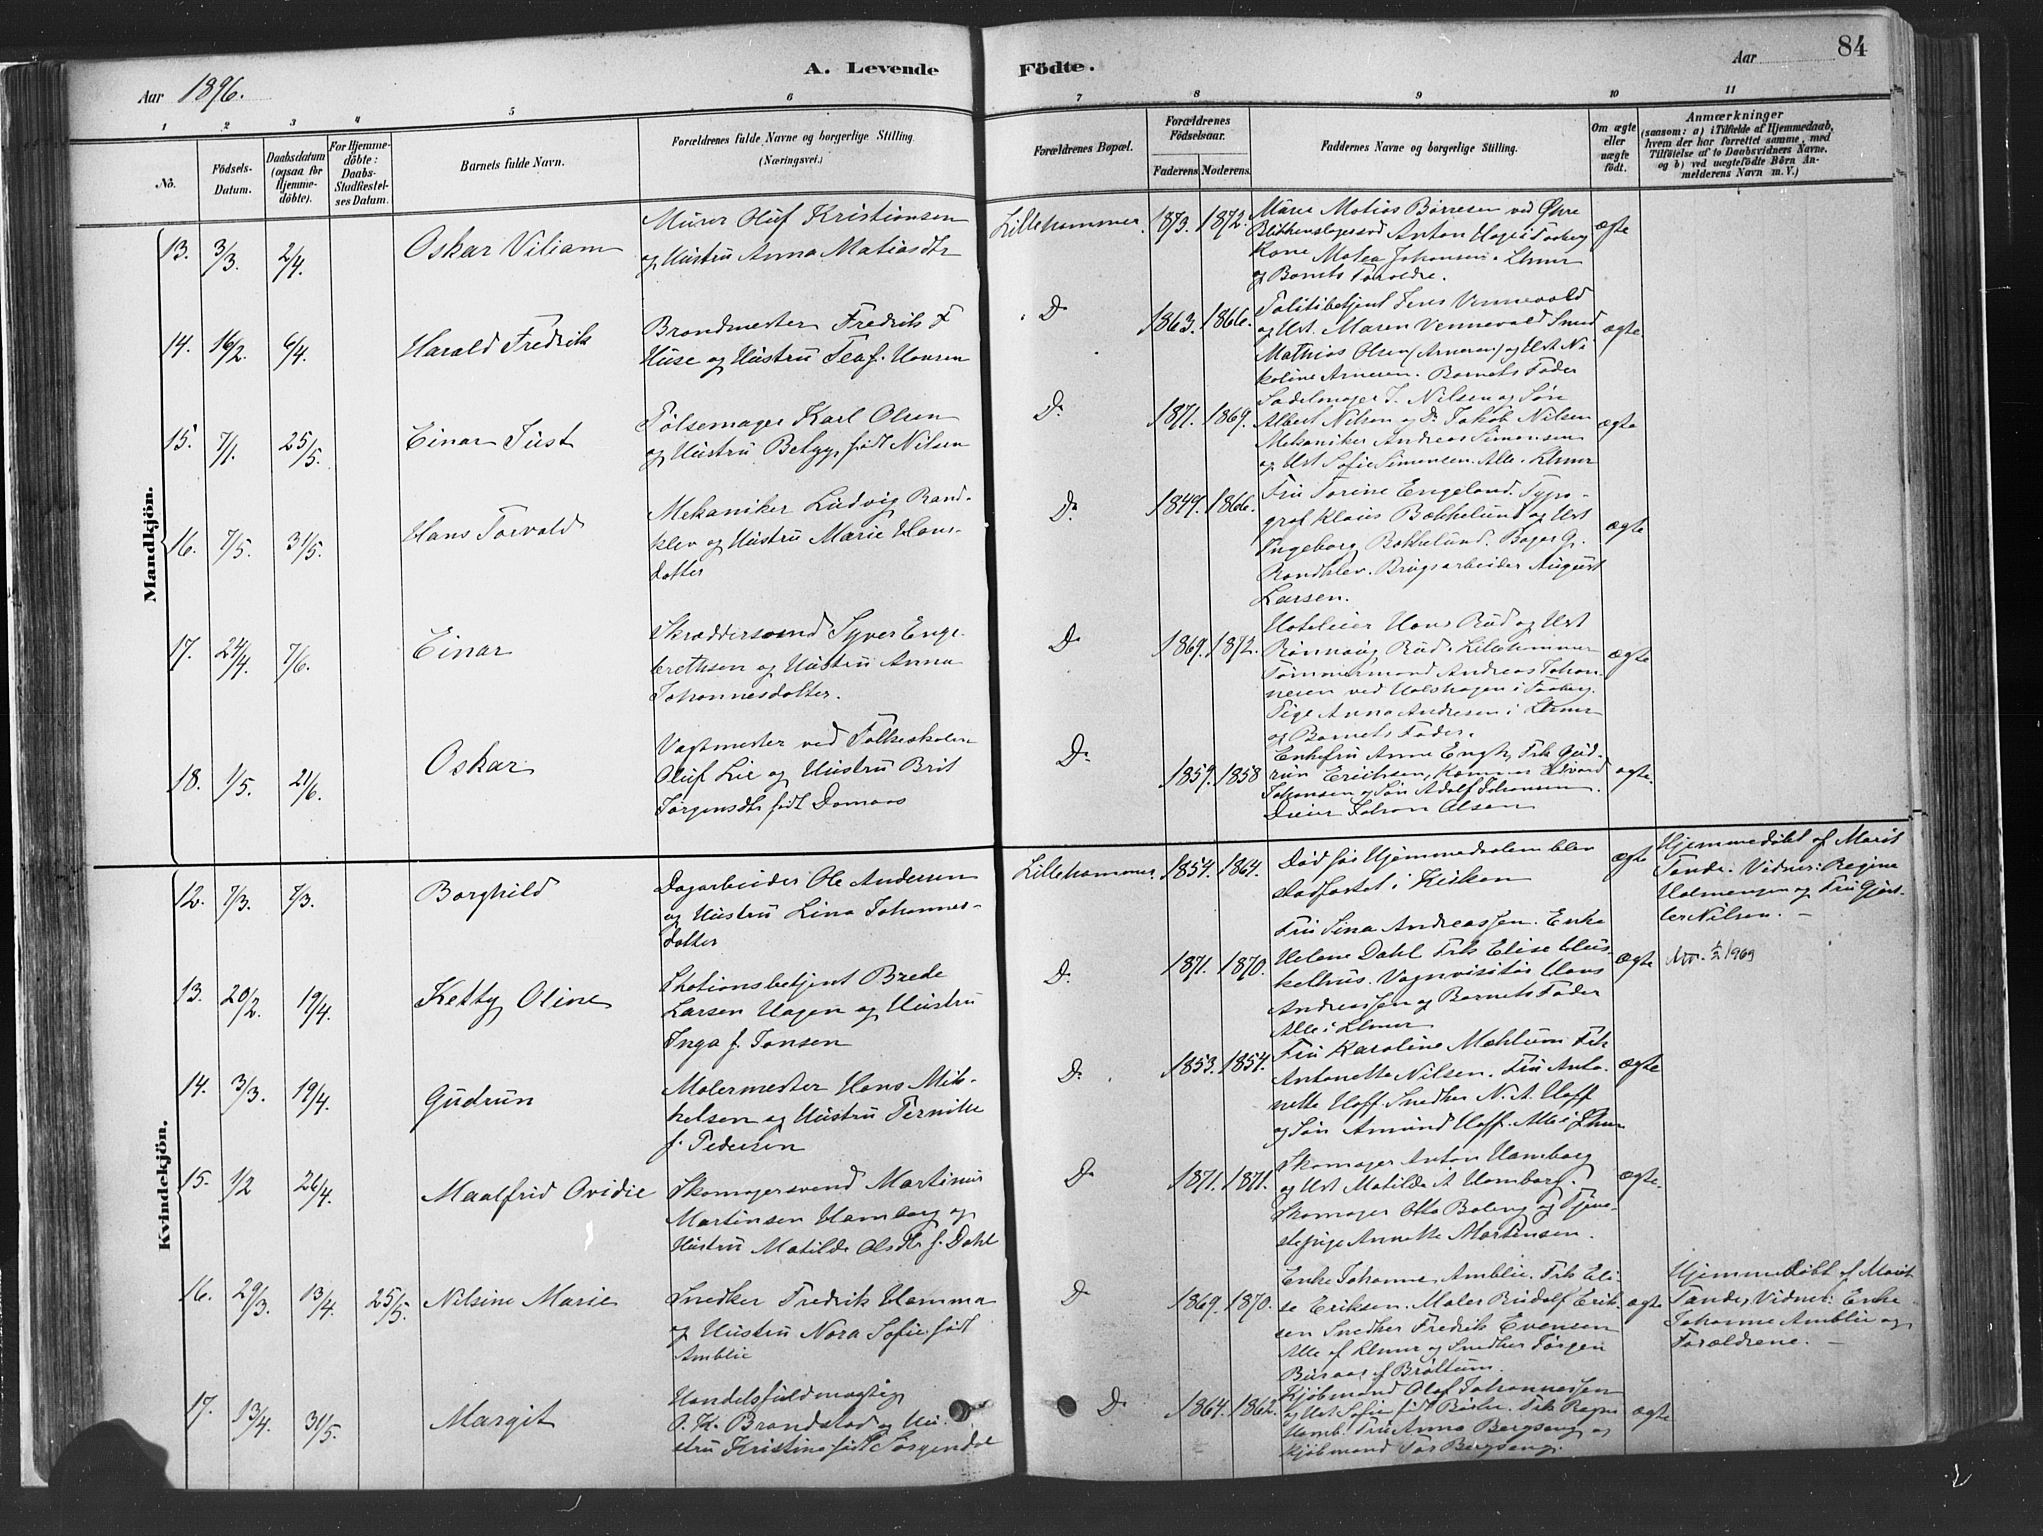 84
Aar 1896.
A. Levende
Födte.
Aar
1 2 3 4 5 6 7 8 9 10 11
No.
Födsels-
Datum.
Daabsdatum
(ogsaa for
Hjemme-
döbte).
For Hjemme-
döbte:
Daabs-
Stadfæstel-
ses Datum.
Barnets fulde Navn.
Forældrenes fulde Navne og borgerlige Stilling.
(Næringsvei.)
Forældrenes Bopæl.
Forældrenes
Födselsaar.
Faderens. Moderens.
Faddernes Navne og borgerlige Stilling.
Om ægte
eller
uægte
födt.
Anmærkninger
(saasom: a) i Tilfælde af Hjemmedaab,
hvem der har forrettet samme, med
Tilföielse af to Daabsvidners Navne,
og b) ved uægtefödte Börn An-
melderens Navn m. V.)
Mandkjön.
13. 3/3. 2/4. Oskar Viliam
Murer Oluf Kristiansen
og Hustru Anna Matiasdtr
Lillehammer. 1873. 1872.
Marie Matias Børresen ved Øvre
Anton Hage i Faaberg
Kone Matea Johansen. Lhmr
og Barnets Forældre.
ægte
14. 16/2. 6/4. Harald Fredrik
Brandmester Fredrik F
Huse og Hustru Thea f. Hansen
Do 1863. 1866.
Politibetjent Jens Vennevold
og Hst. Maren Vennevold Smed
Mathias Olsen (Arnesen) og Hst Ni-
koline Arnesen. Barnets Fader
ægte.
15. 7/1. 25/5. Einar Just
Pølsemager Karl Olsen
og Hustru Betzy, født Nilsen
Do 1871. 1869.
Sadelmager J. Nilsen og Søn
Albert Nilsen og Do Jakob Nilsen
Mekaniker Andreas Simensen
og Hst Sofie Simensen. Alle Lhmr
ægte
16. 7/5. 31/5. Hans Torvald
Mekaniker Ludvig Rand-
klev og Hustru Marie Hans-
dotter
Do 1849. 1866.
Fru Torine Engeland. Typo-
graf Klaus Bækkelund og Hst
Ingeborg Bækkelund. Bager G.
Randklev. Brugsarbeider August
Larsen.
ægte
17. 24/4. 7/6. Einar
Skræddersvend Syver Enge-
brethsen og Hustru Anna
Johannesdotter.
Do 1869. 1872.
Hoteleier Hans Rud og Hst
Rønnaug Rud. Lillehammer
Tømmermand Andreas Johan-
nesen ved Holshagen i Faaberg.
Pige Anna Andresen i Lhmr
og Barnets Fader.
ægte
18. 1/5. 21/6. Oskar
Vagtmester ved Folkeskolen
Oluf Lie og Hustru Brit
Jørgensdtr født Domaas
Do 1859. 1858
Enkefru Anne Engh, Frk Gud-
run Erichsen, Edvard
Johansen og Søn Adolf Johansen.
Dreier Johan Olsen
ægte.
Kvindekjön.
12. 7/3. 7/3. Borghild
Dagarbeider Ole Andersen
og Hustru Lina Johannes-
dotter
Lillehammer 1854. 1864.
Død før Hjemmedaaben blev
stadfæstet i Kirken
ægte
Hjemmedøbt af Marit
Tande. Vidner: Regine
Holmengen og Fru Gjørt-
ler Nilsen. —
13. 20/2. 19/4. Ketty Oline
Stationsbetjent Brede
Larsen Hagen og Hustru
Inga f. Jonsen
Do 1871. 1870.
Fru Sina Andreassen. Enke
Helene Dahl Frk Elise Hus-
kelhus. Vognvisitør Hans
Andreassen og Barnets Fader
Alle i Lhmr
ægte
1969
14. 3/3. 19/4. Gudrun
Malermester Hans Mik-
kelsen og Hustru Pernille
f. Pedersen
Do 1853. 1854.
Fru Karoline Mæhlum Frk
Antonette Nilsen. Fru Anto-
nette Hoff. Snedker N. A. Hoff
og Søn Amund Hoff. Alle i Lhmr
ægte
15. 1/2 26/4. Maalfrid Ovidie
Skomagersvend Martinus
Martinsen Hamborg og
Hustru Matilde Olsdtr f. Dahl
Do 1871. 1871.
Skomager Anton Hamborg
og Hst Matilde A Hamborg.
Skomager Otto Baleng og Tjene-
stepige Annette Martinsen.
ægte.
16. 29/3. 13/4. 25/5. Nilsine Marie
Snedker Fredrik Hamma
og Hustru Nora Sofie født
Amblie
Do 1869. 1870.
Enke Johanne Amblie. Frk Eli-
se Eriksen. Maler Rudolf Erik-
sen Snedker Fredrik Evensen
Alle af Lhmr og Snedker Jørgen
Buraas af Brøttum.
ægte
Hjemmedøbt af Marit
Tande, Vidner: Enke
Johanne Amblie og
Forældrene. —
17. 13/4. 31/5. Margit
Handelsfuldmægtig
O. K. Brandstad og Hu-
stru Kristine født Jørgendal
Do 1864. 1862.
Kjøbmand Olaf Johannessen
og Hst Sofie født Frk Ragna
Hamb. Fru Anna Bergseng og
Kjøbmand Tor Bergseng.
ægte